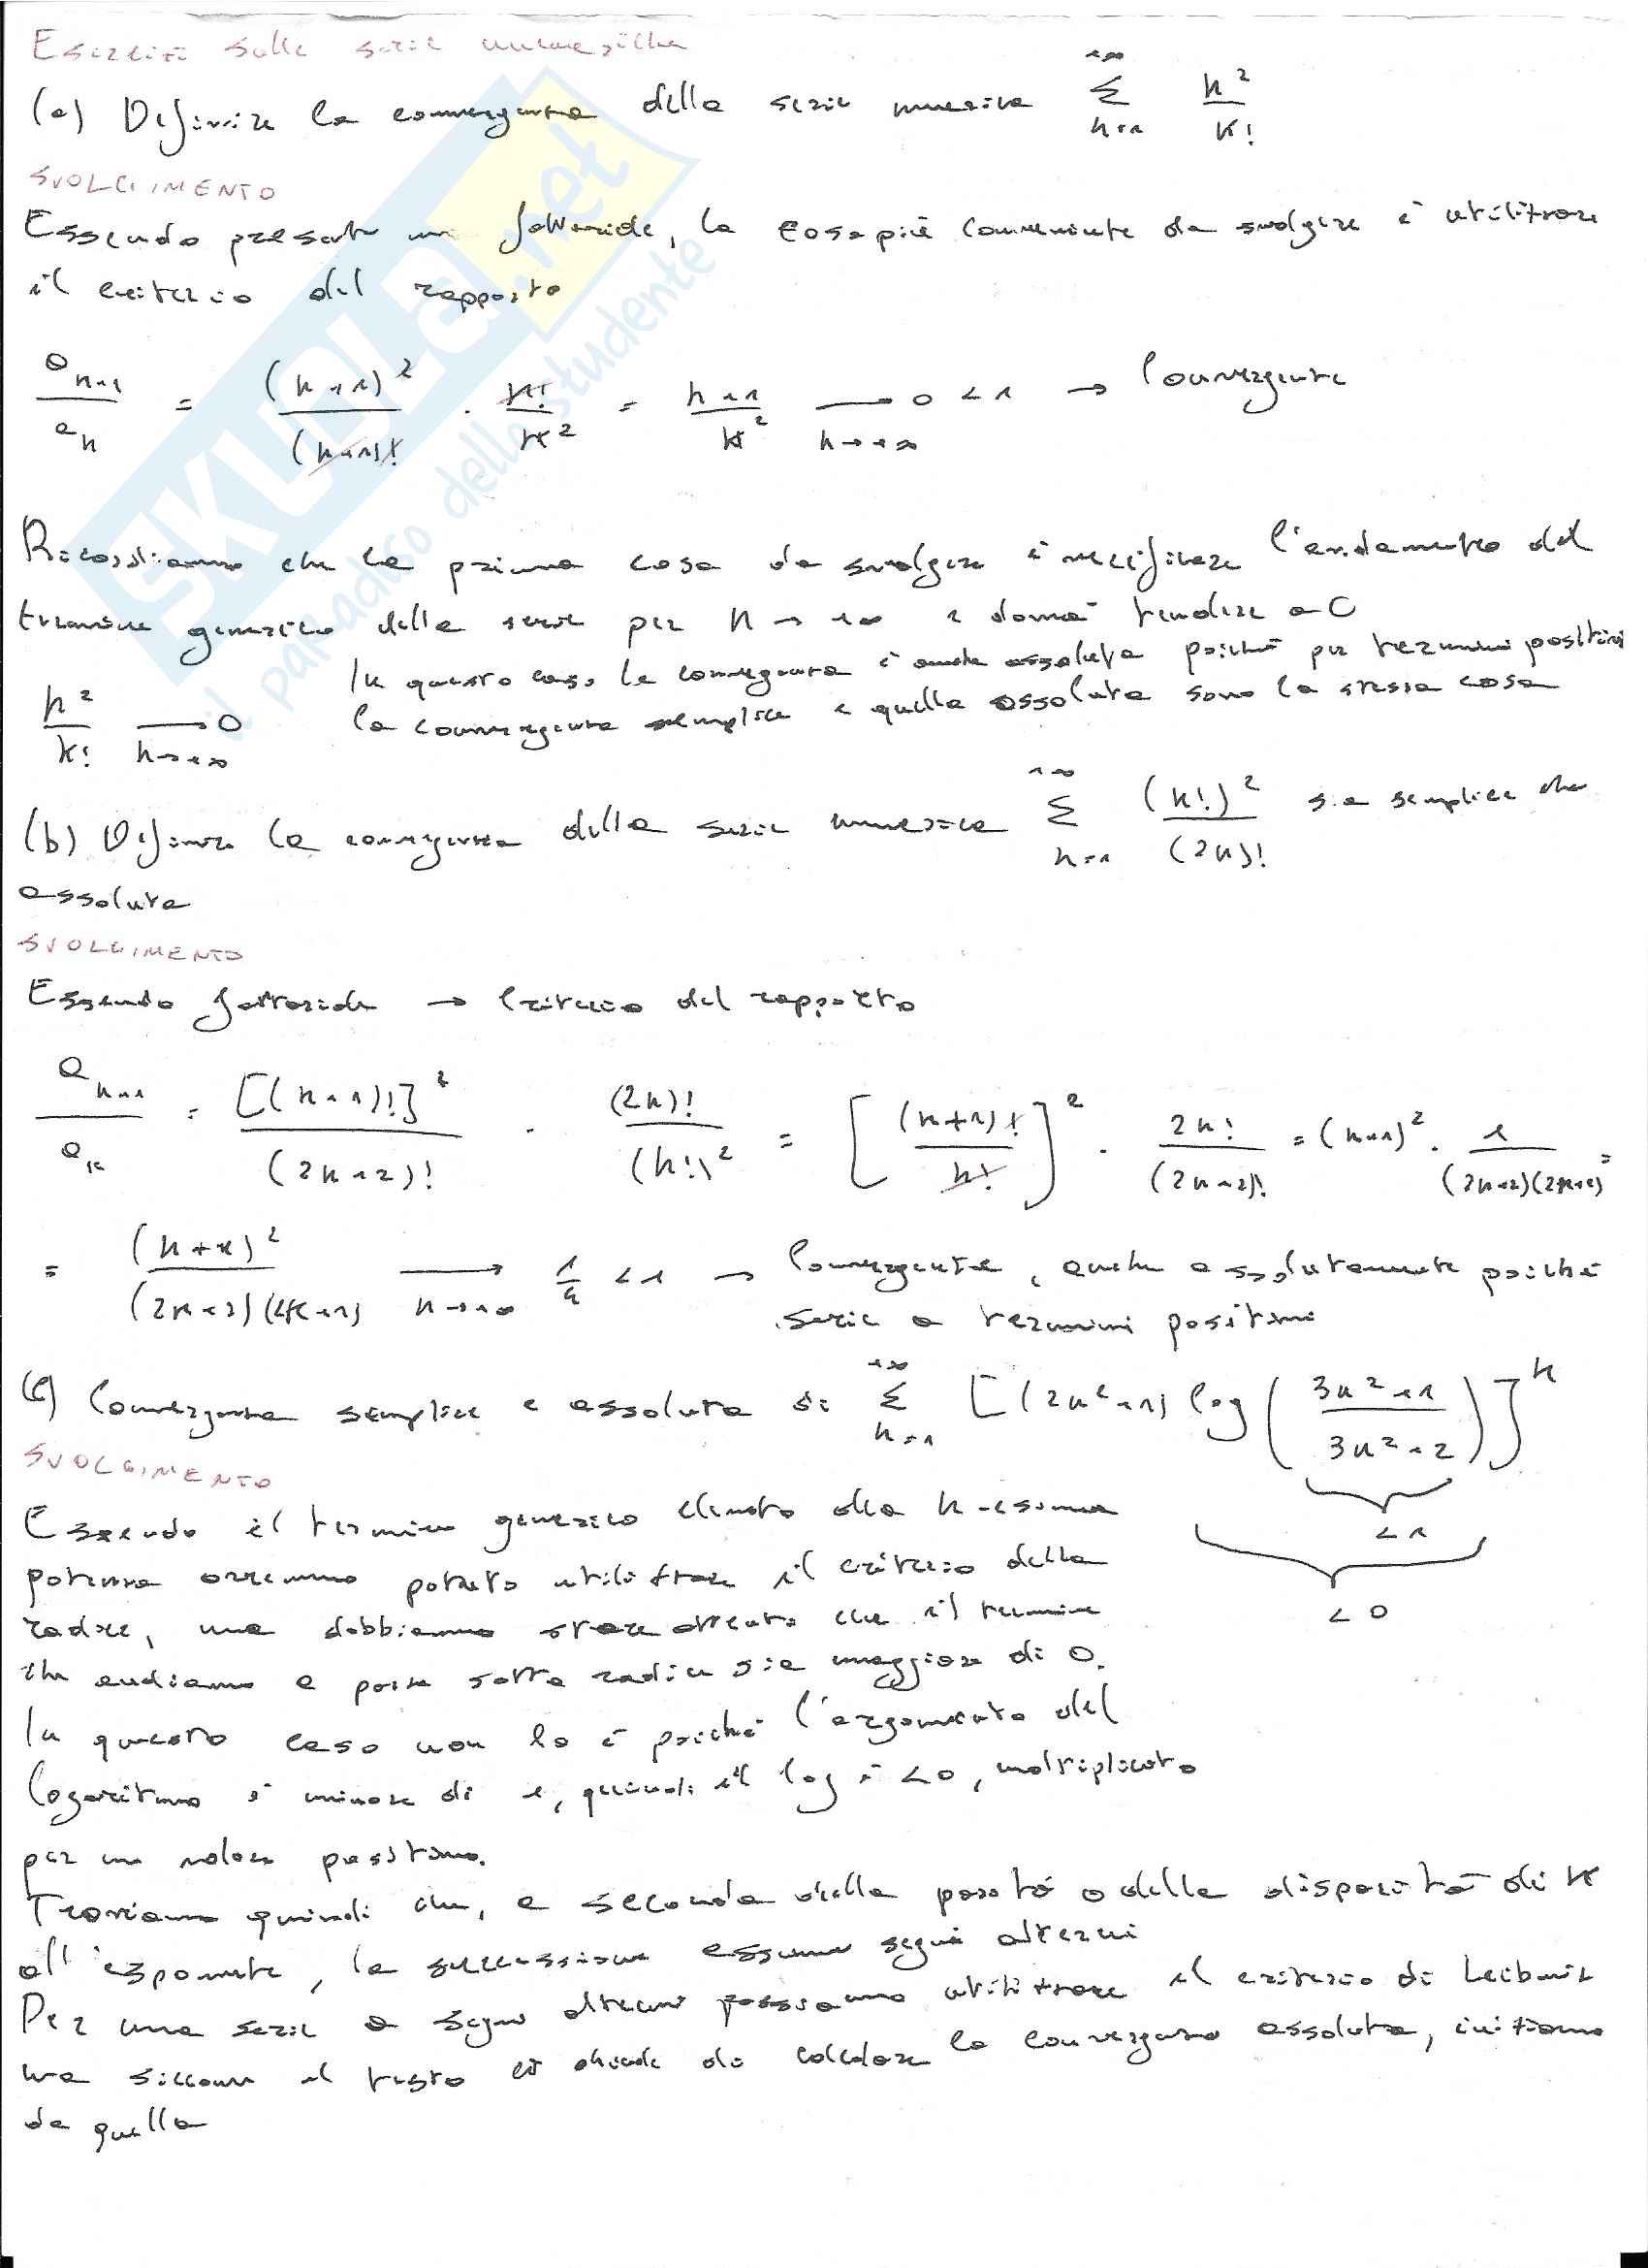 Esercizi sulle serie numeriche
(a) Definire la convergenza della serie numerica \sum_{n=1}^{+∞} \frac{n^2}{n!}
SVOLGIMENTO
Essendo presente un fattoriale, la cosa più conveniente da svolgere è utilizzare
il criterio del rapporto
\frac{a_{n+1}}{a_n} = \frac{(n+1)^2}{(n+1)!} · \frac{n!}{n^2} = \frac{n+1}{n^2} \xrightarrow[n→+∞]{} 0 < 1 → Convergente
Ricordiamo che la prima cosa da svolgere è verificare l'andamento del
termine generico della serie per n → +∞ e dovrà tendere a 0
In questo caso la convergenza è anche assoluta poiché per termini positivi
\frac{n^2}{n!} \xrightarrow[n→+∞]{} 0 la convergenza semplice e quella assoluta sono la stessa cosa
(b) Definire la convergenza della serie numerica \sum_{n=1}^{+∞} \frac{(n!)^2}{(2n)!} sia semplice che
assoluta
SVOLGIMENTO
Essendo fattoriale → Criterio del rapporto
\frac{a_{n+1}}{a_n} = \frac{[(n+1)!]^2}{(2n+2)!} · \frac{(2n)!}{(n!)^2} = [\frac{(n+1)!}{n!}]^2 · \frac{2n!}{(2n+2)!} = (n+1)^2 · \frac{1}{(2n+2)(2n+1)} =
= \frac{(n+1)^2}{(2n+2)(2n+1)} \xrightarrow[n→+∞]{} \frac{1}{4} < 1 → Convergente, anche assolutamente poiché
serie a termini positivi
(c) Convergenza semplice e assoluta di \sum_{n=1}^{+∞} [(2n^2+1) log(\frac{3n^2+1}{3n^2+2})]^n
SVOLGIMENTO
Essendo il termine generico elevato alla n-esima
< 1
potenza avremmo potuto utilizzare il criterio della
< 0
radice, ma dobbiamo stare attenti che il termine
che andiamo a porre sotto radice sia maggiore di 0.
In questo caso non lo è poiché l'argomento del
logaritmo è minore di 1, quindi il log è <0, moltiplicato
per un valore positivo.
Troviamo quindi che, a seconda della parità o della disparità di n
all'esponente, la successione assume segni alterni
Per una serie a segni alterni possiamo utilizzare il criterio di Leibniz
ma siccome il testo ci chiede di calcolare la convergenza assoluta, iniziamo
da quella
SKUOLA.net
il paradiso dello studente